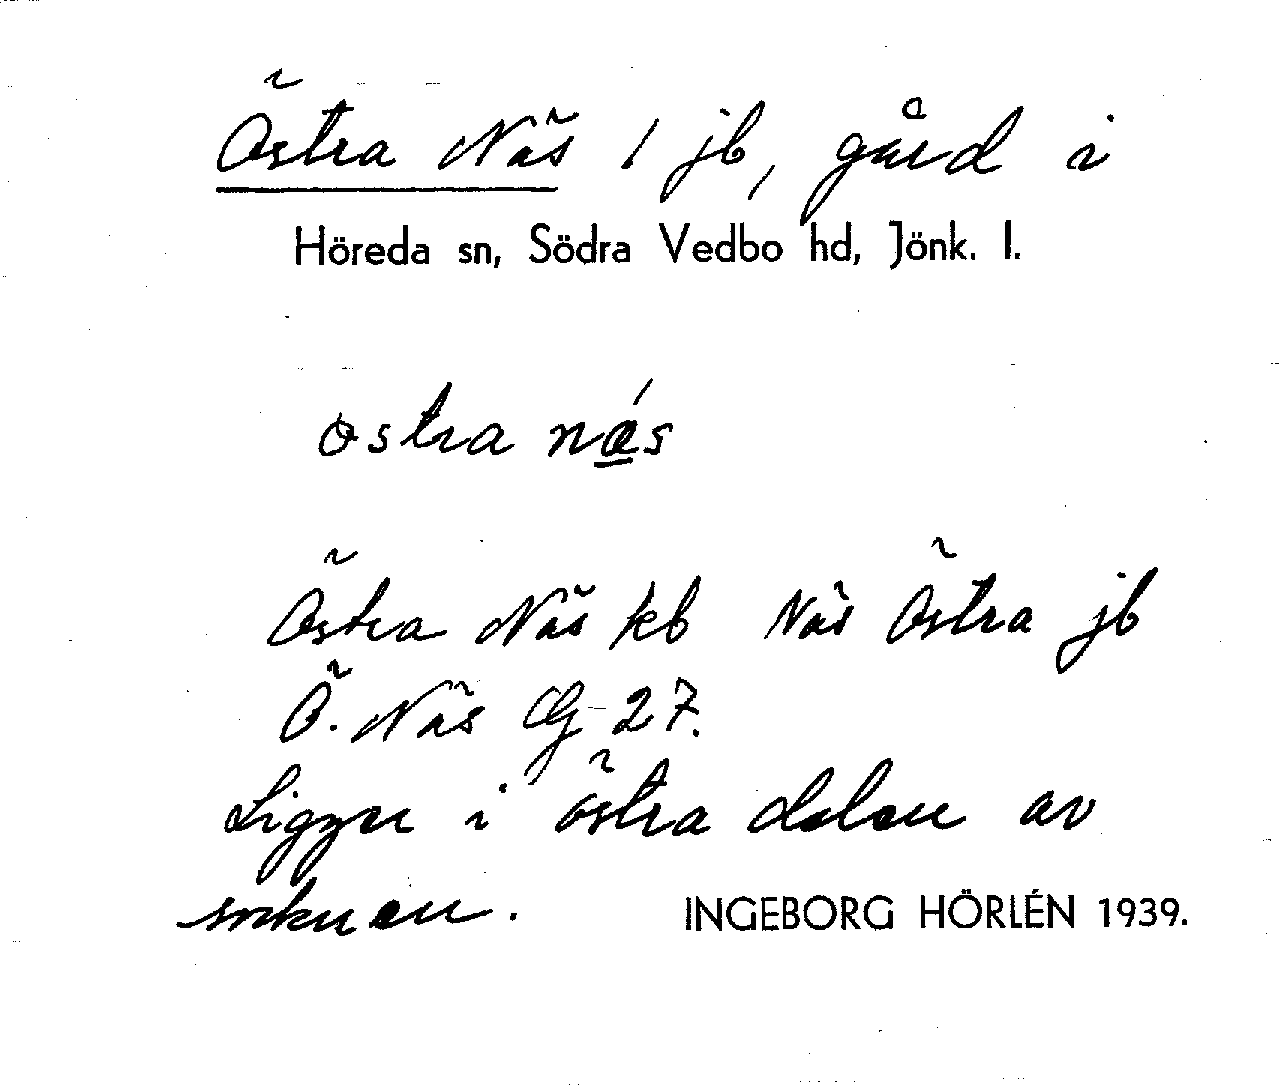 Östra Näs 1 jb, gård i
Höreda sn, Södra Vedbo hd, Jönk. l.
östra nǽ̲s
Östra Näs kb Näs Östra jb
Ö. Näs G 27.
Ligger i östra delen av
socknen.
INGEBORG HÖRLÉN 1939.